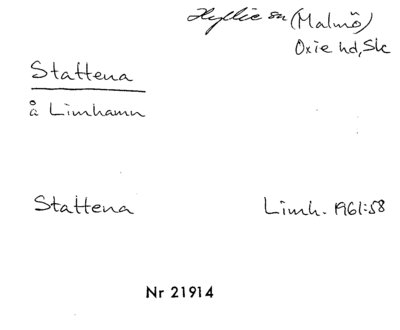 Hyllie sn (Malmö)
Oxie hd, Sk
Stattena
å Limhamn
Stattena Limh. 1961:58
Nr 21914